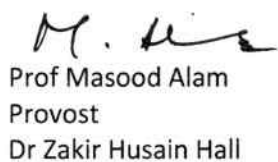 Prof Masood Alam
Provost
Dr Zakir Husain Hall